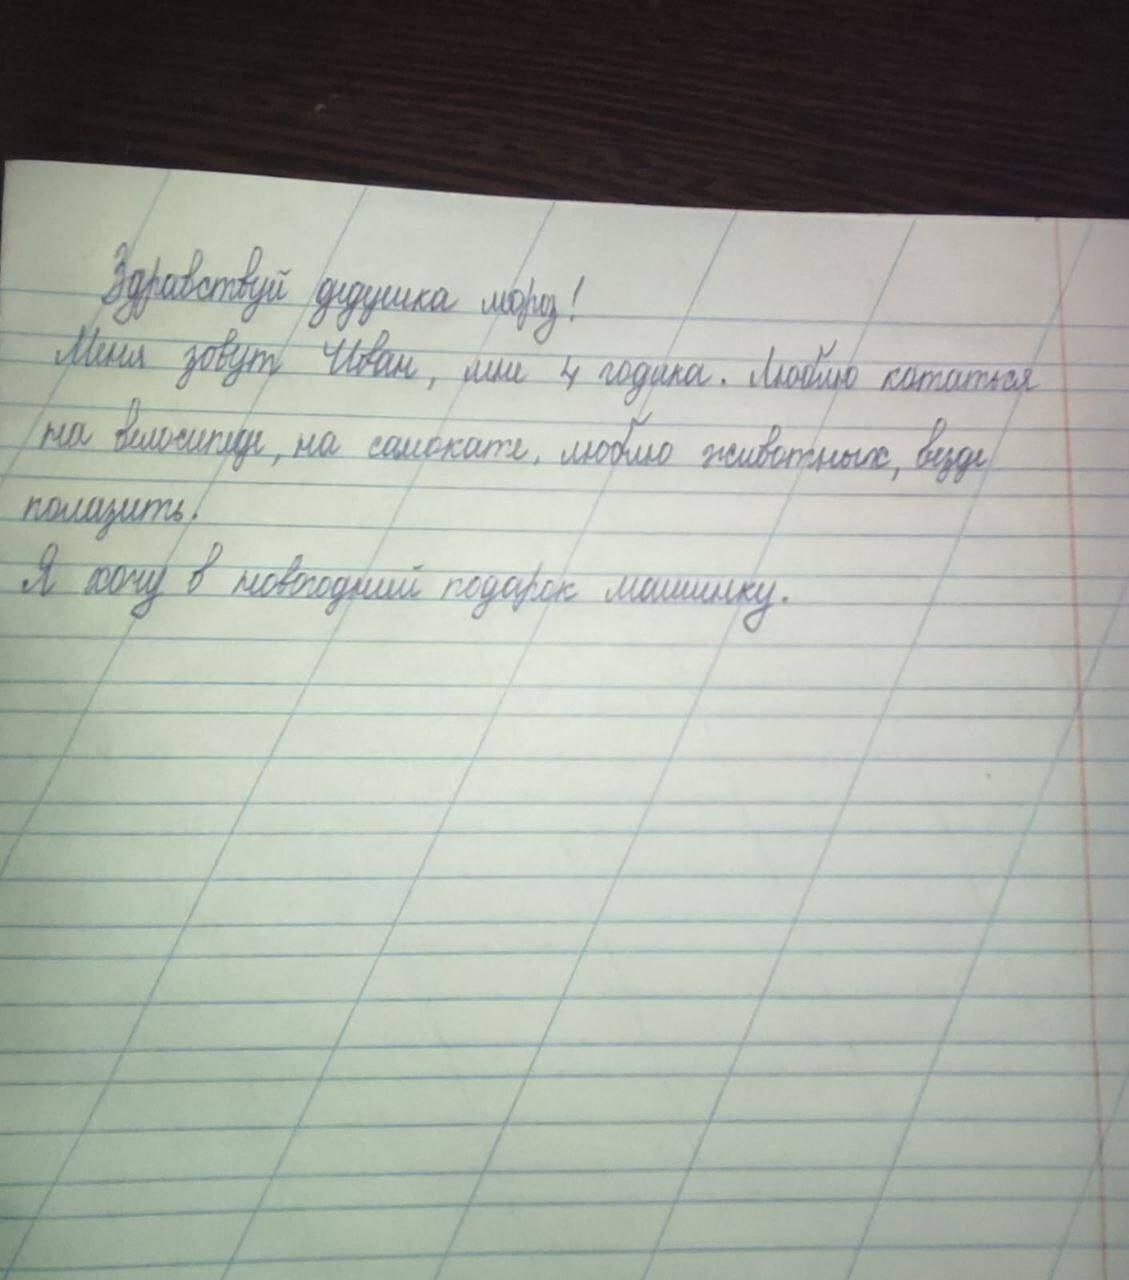 Здравствуй дедушка мороз!
Меня зовут Иван, мне 4 годика. Люблю кататься
на велосипеде, на самокате, люблю животных, везде
полазить.
Я хочу в новогодний подарок машинку.